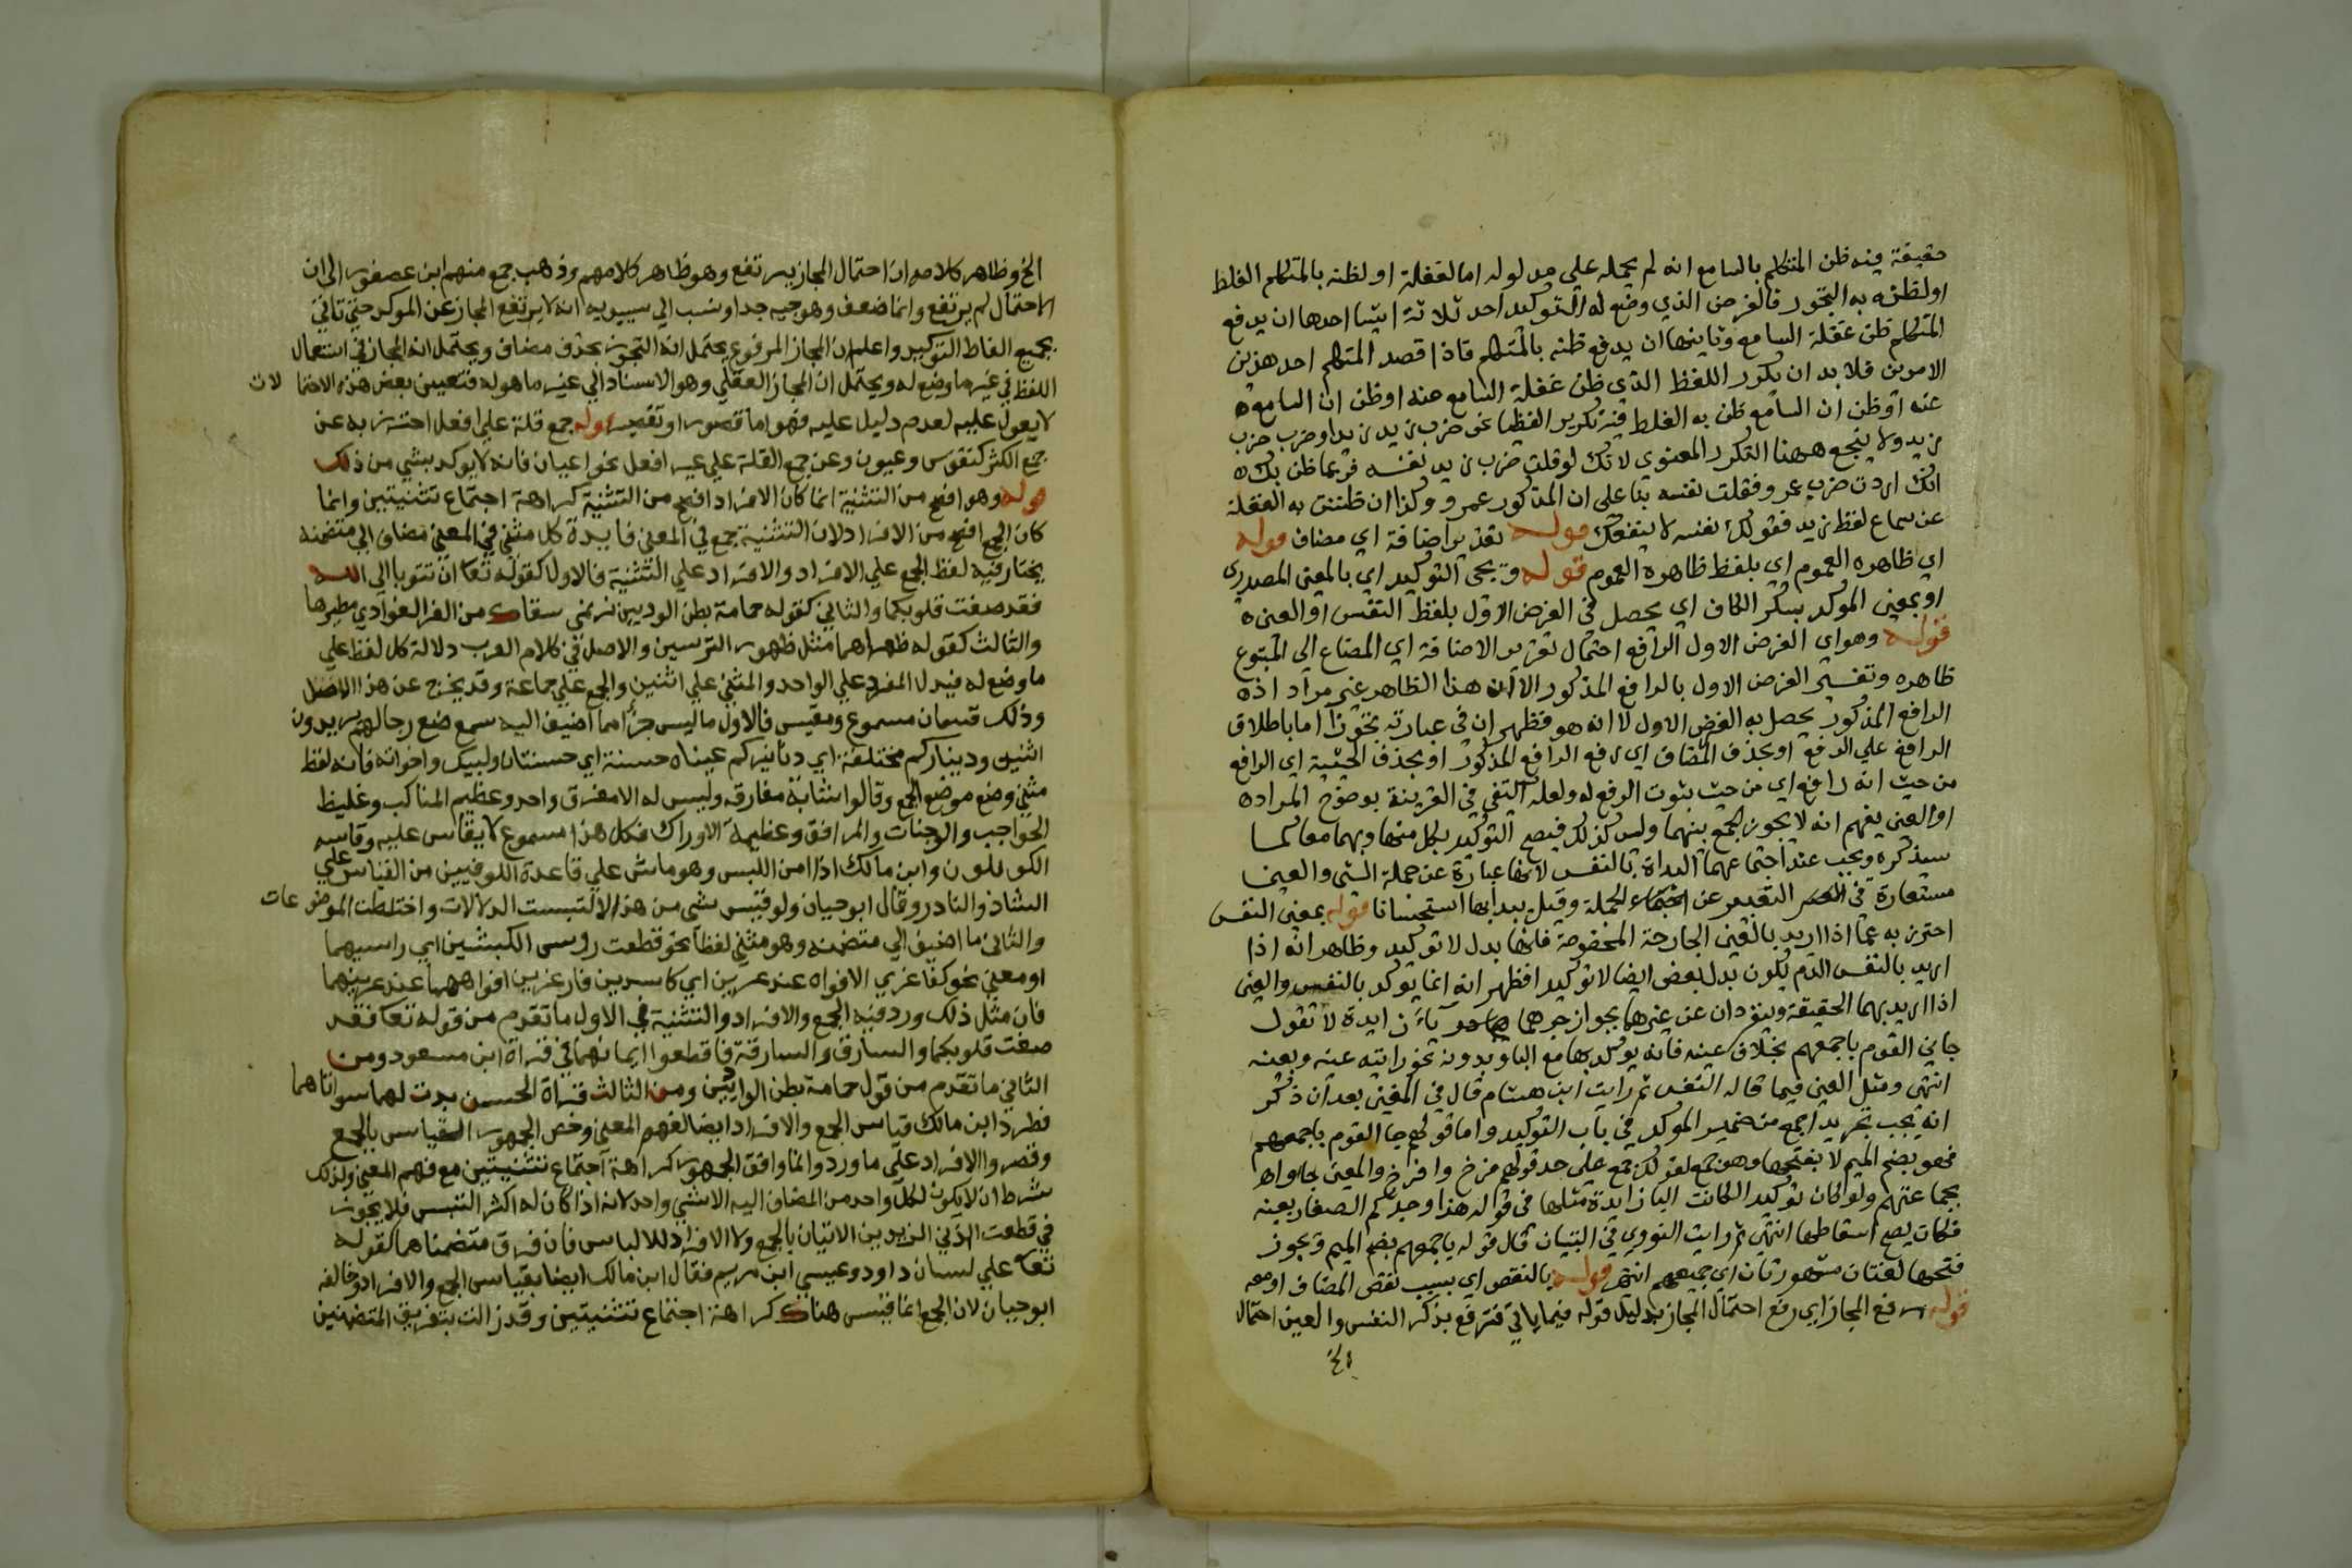 حقيقة فيه ظن المتكلم بالسامع انه لم يحمله علي مدلوله اما لغفلة او لظنه بالمتكلم الغلط
او لظنه به التجوز فالغرض الذي وضع له التوكيد احد ثلاثة اشيا احدها ان يدفع
المتكلم ظن غفلة السامع وثانيها ان يدفع ظنه بالمتكلم فاذا قصد المتكلم احد هذين
الامرين فلا بد ان يكرر اللفظ الذي ظن غفلة السامع عنه او ظن ان السامع
عنه او ظن ان السامع ظن به الغلط فيه تكرير اللفظيا نحو ضرب زيد زيد او ضرب ضرب
زيد ولا ينجع ههنا التكرر المعنوي لانك لو قلت ضرب زيد نفسه فربما ظن بك
انك اردت ضرب عمرو فقلت نفسه بنا علي ان المذكور عمرو وكذا ان ظننت به الغفلة
عن سماع لفظ زيد فقولك نفسه لا ينفعك قوله تقدير اضافة اي مضاف قوله
اي ظاهره العموم اي بلفظ ظاهره العموم قوله ويجى التوكيد اي بالمعنى المصدرى
او بمعنى الموكد بكسر الكاف اي يحصل في الغرض الاول بلفظ النفس او العين
قوله وهو اي الغرض الاول الرافع احتمال تقدير الاضافة اي المضاع الى المتبوع
ظاهره وتفسير الغرض الاول بالرافع المذكور الا ان هذا الظاهر غير مراد اذ
الرافع المذكور يحصل به الغرض الاول لا انه هو فظهر ان في عبارته تجوزا اما باطلاق
الرافع علي الدفع او بحذف المضاف اي رفع الرافع المذكور او بحذف الحيثية اي الرافع
من حيث انه رافع اي من حيث ثبوت الرفع له ولعله اكتفي في القرينة بوضوح المراد
او العين يفهم انه لا يجوز الجمع بينهما وليس كذلك فيصح التوكيد بكل منهما وبهما معا كما
سيذكره ويجب عند اجتماعهما البداة بالنفس لانها عبارة عن جملة الشي والعين
مستعارة في التعبير عن الجملة وقيل يبدا بها استحسانا قوله بمعنى النفس
احترز به عما اذا اريد بالعين الجارحة المخصوصة فانها بدل لا توكيد وظاهر انه اذا
اريد بالنفس الدم يكون بدل بعض ايضا لا توكيدا فظهر انه انما يوكد بالنفس والعين
اذا اريد بهما الحقيقة وينفردان عن غيرهما بجواز جرهما بباء زايدة لا تقول
جاني القوم باجمعهم بخلاف عينه فانه يوكد بها مع البا وبدونه نحو رايته عينه وبعينه
انتهى ومثل العين فيما قاله النفس ثم رايت ابن هشام قال في المغني بعد ان ذكر
انه يجب تجريد اجمع من ضمير الموكد في باب التوكيد واما قولهم جا القوم باجمعهم
فهو بضم الميم لا بفتحها وهو جمع لقولك جمع علي حد قولهم فرخ وافرخ والمعنى جاوا
بجماعتهم ولو كان توكيدا لكانت البا زايدة مثلها في قوله هذا وجدكم الصغار بعينه
فكان يصح اسقاطها انتهى ثم رايت النووي في التبيان قال قوله باجمعهم بضم الميم ويجوز
فتحها لغتان مشهورتان اي جميعهم انتهى قوله بالنقص اي بسبب نقص المضاف او معه
قوله رفع المجاز اي رفع احتمال المجاز بدليل قوله فيما ياتي فترفع بذكر النفس والعين احتمال
الخ وظاهر كلامه ان احتمال المجاز يرتفع وهو ظاهر كلامهم وذهب جمع منهم ابن عصفور الى ان
الاحتمال لم يرتفع وانما ضعف وهو وجيه جدا ونسب الي سيبويه انه لا يرتفع المجاز عن الموكد حتي تاتي
بجميع الفاظ التوكيد واعلم ان المجاز المرفوع يحتمل انه التجوز بحذف مضاف ويحتمل انه المجاز في استعمال
اللفظ في غير ما وضع له ويحتمل ان المجاز العقلي وهو الاسناد الي غير ما هو له فتعيين بعض هذه الاحتما لات
لا يعول عليه لعدم دليل عليه فهو اما قصور او تقصير قوله جمع قلة علي افعل احترز به عن
جمع الكثر كنفوس وعيون وعن جمع القلة علي غير افعل نحو اعيان فانه لا يوكد بشي من ذلك
قوله وهو افصح من التثنية انما كان الافراد افصح من التثنية كراهة اجتماع تثنيتين وانما
كان الجمع افصح من الافراد لان التثنية جمع في المعني فايدة كل مثني في المعني مضاف الي متضمنه
يختار فيه لفظ الجمع علي الافراد والافراد علي التثنية فالاول كقوله تعا ان تتوبا الي الله
فقد صغت قلوبكما والثاني كقوله حمامة بطن الوديين ترنمي سقاك من الغر الغوادي مطيرها
والثالث كقوله ظهراهما مثل ظهور الترسين والاصل في كلام العرب دلالة كل لفظ علي
ما وضع له فيدل المفرد علي الواحد والمثني علي اثنين والجمع علي جماعة وقد يخرج عن هذا الاصل
وذلك قسمان مسموع ومقيس فالاول ما ليس جزا مما اضيف اليه سمع ضع رجالهم يريدون
اثنين وديناركم مختلفة اي دنانيركم عيناه حسنة اي حسنتان ولبيك واخواته فانه لفظ
مثني وضع موضع الجمع وقالوا شابة مفارقه وليس له الا مفرق واحد وعظيم المناكب وغليظ
الحواجب والوجنات والمرافق وعظيمة الاوراك فكل هذا مسموع لا يقاس عليه وقاسه
الكوفيون وابن مالك اذا امن اللبس وهو ماش علي قاعدة الكوفيين من القياس علي
الشاذ والنادر وقال ابو حيان ولو قيس شي من هذا لالتبست الدلالات واختلطت الموضو عات
والثاني ما اضيف الي متضمنه وهو مثني لفظا نحو قطعت روس الكبشين اي راسيهما
او معني نحو كفاغري الافواه عند عرين اي كاسرين فاغرين افواههما عند عرينهما
فان مثل ذلك ورد فيه الجمع والافراد والتثنية في الاول ما تقدم من قوله تعا فقد
صغت قلوبكما والسارق والسارقة فاقطعوا ايمانهما في قراة ابن مسعود ومن
الثاني ما تقدم من قول حمامة بطن الواديين ومن الثالث قراة الحسن بدت لهما سواتاهما
فطرد ابن مالك قياس الجمع والافراد ايضا لفهم المعني وخص الجمهور القياس بالجمع
وقصروا الافراد علي ما ورد وانما وافق الجمهور كراهة اجتماع تثنيتين مع فهم المعني ولذلك
شرط ان لا يكون لكل واحد من المضاف اليه الا شي واحد لانه اذا كان له اكثر التبس فلا يجوز
في قطعت اذني الزيدين الاتيان بالجمع ولا الافراد للالباس فان فرق متضمناهما كقوله
تعا علي لسان داود وعيسي ابن مريم فقال ابن مالك ايضا بقياس الجمع والافراد وخالفه
ابو حيان لان الجمع انما قيس هناك كراهة اجتماع تثنيتين وقد زالت بتفريق المتضمنين